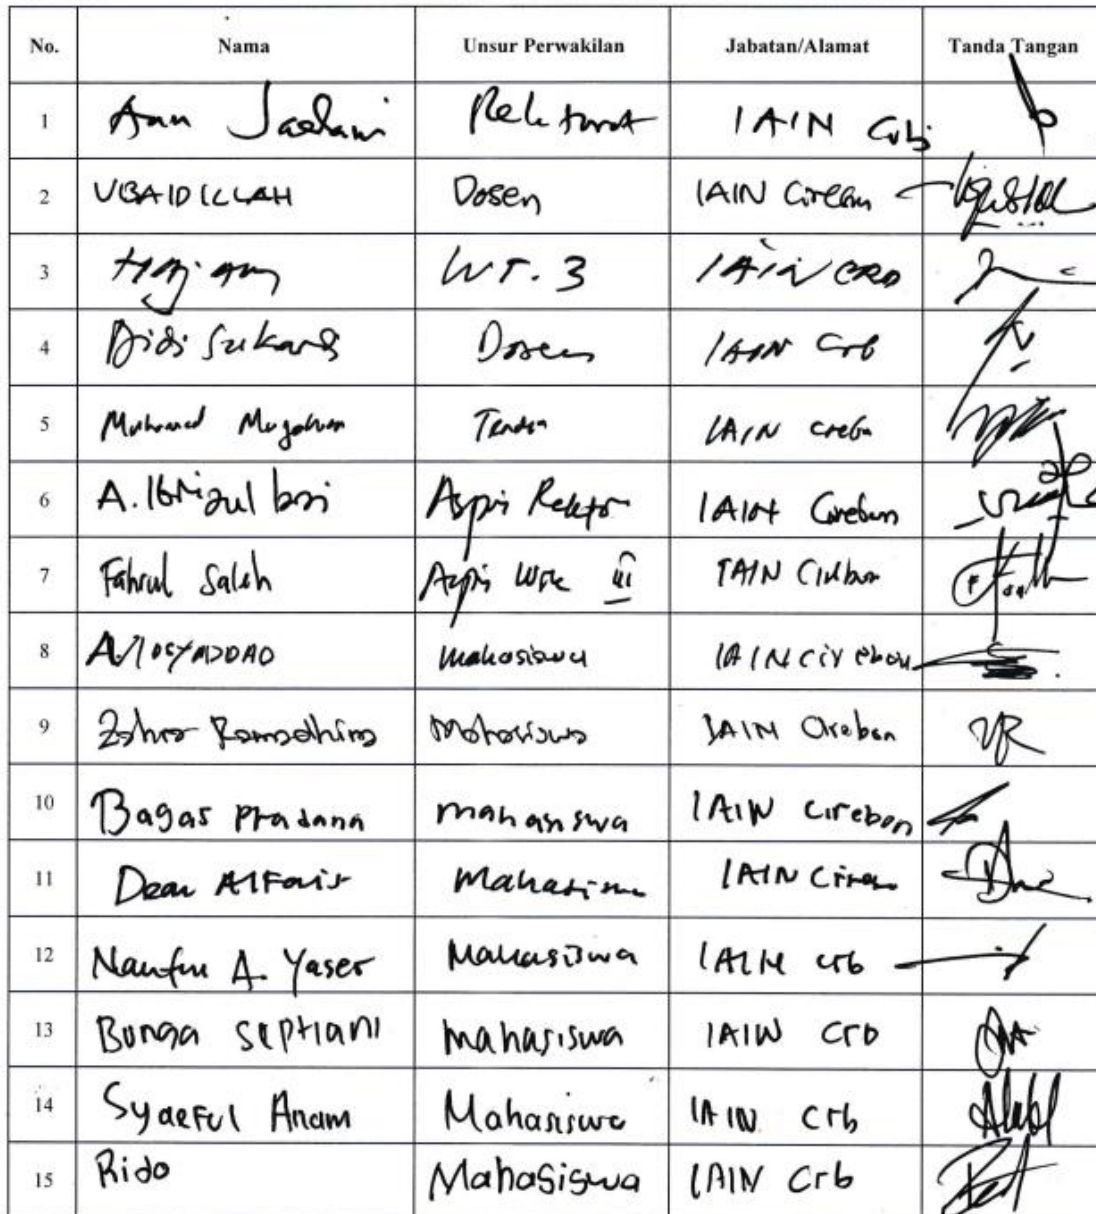 No. Nama Unsur Perwakilan Jabatan/Alamat Tanda Tangan
1 Aan Jaelani Rektorat IAIN
2 UBAIDILLAH Dosen IAIN Cirebon
3 Hajam WR. 3 IAIN CRB
4 Didi Sukardi Dosen IAIN Crb
5 IAIN
6 Aspri Rektor IAIN Cirebon
7 Fahrul Saleh Aspri III IAIN Cirebon
8 mahasiswa IAIN cirebon
9 Zahra Ramadhina Mahasiswa IAIN Cirebon
10 Bagas Pradana mahasiswa IAIN cirebon
11 Dean Alfaris Mahasiswa IAIN
12 A. Yaser Mahasiswa IAIN crb
13 Bunga Septiani mahasiswa IAIN crb
14 Syaeful Anam Mahasiswa IAIN Crb
15 Rido Mahasiswa IAIN Crb